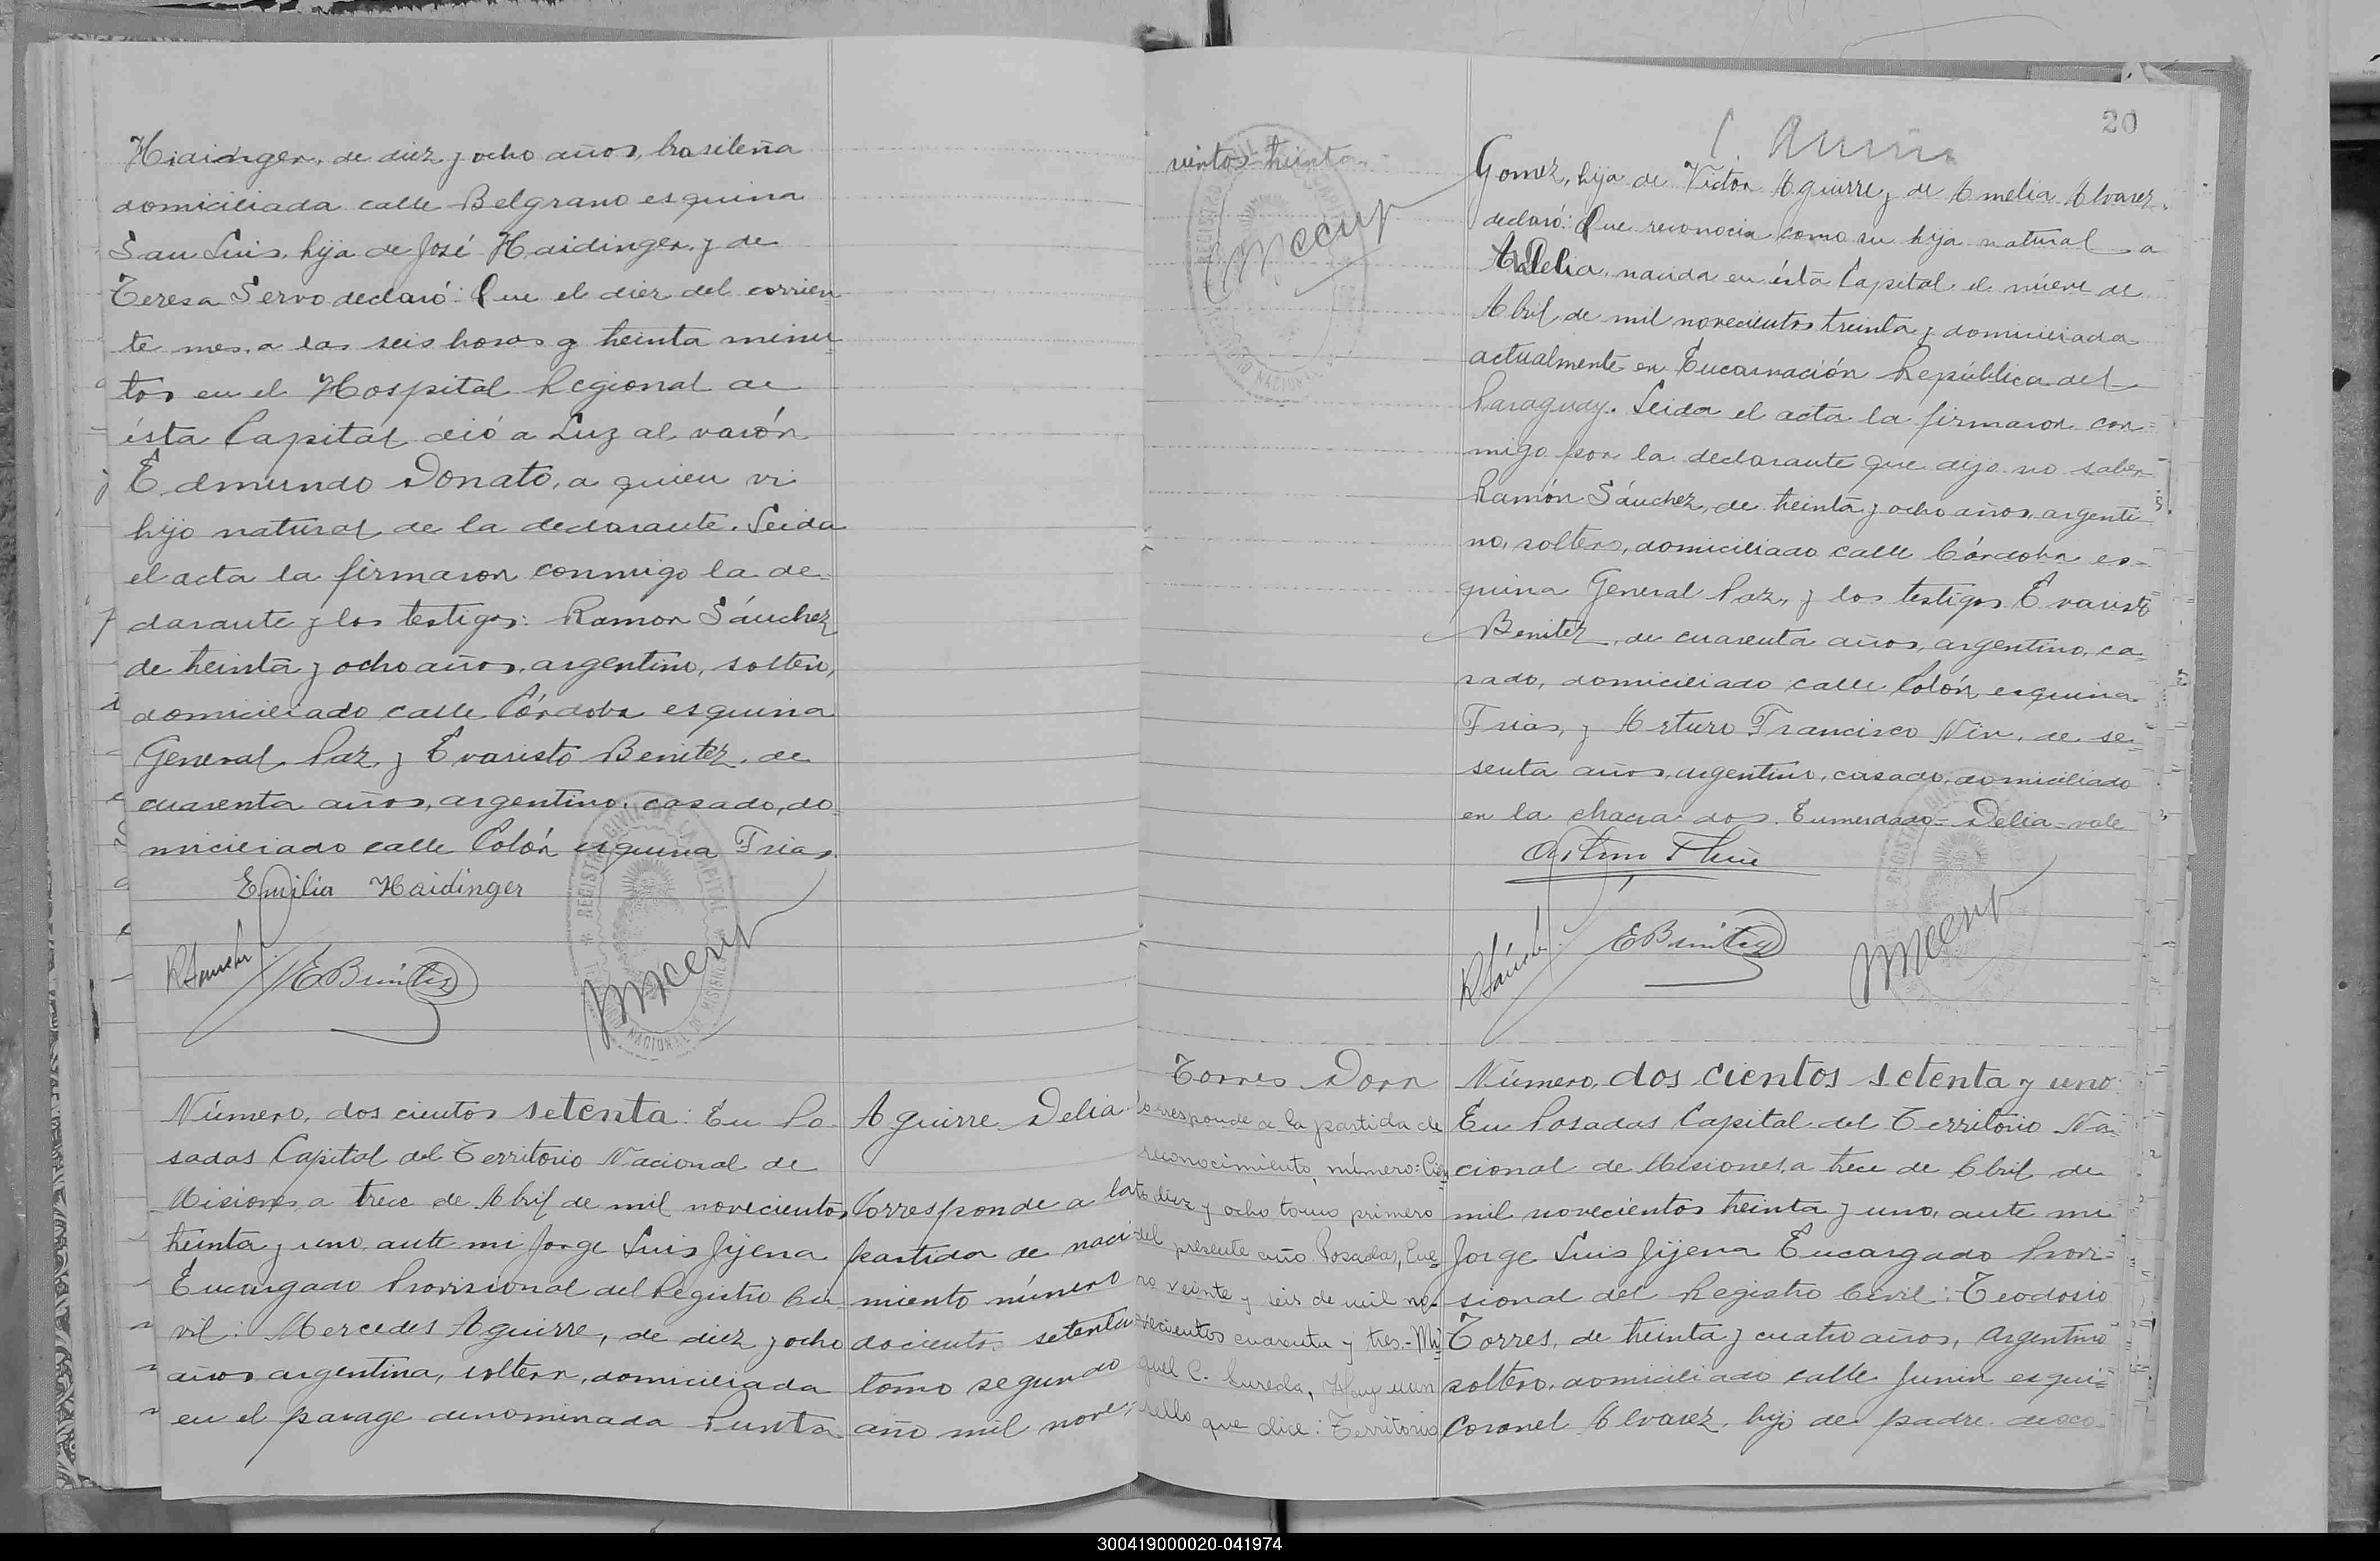 Haidinger, de diez y ocho años, brasileña
domiciliada calle Belgrano esquina
San Luis, hija de José Haidinger y de
Teresa Servo declaró: Que el diez del corrien
te mes, a las seis horas y treinta minu
tos en el Hospital Regional de
ésta Capital dió a Luz al varón
Edmundo Donato, a quien vi
hijo natural de la declarante. Leida
el acta la firmaron conmigo la de=
clarante y los testigos: Ramon Sánchez
de treinta y ocho años, argentino, soltero,
domiciliado calle Córdoba esquina
General Paz, y Evaristo Benitez, de
cuarenta años, argentino, casado, do=
miciliado calle Colón esquina Frias.
Emilia Haidinger
R Sanchez
E Benitez
Número, dos cientos setenta: En Po-
sadas Capital del Territorio Nacional de
Misiones, a trece de Abril de mil novecientos
treinta y uno, ante mi Jorge Luis Jijena
Encargado Provisional del Registro Ci
vil: Mercedes Aguirre, de diez y ocho
años argentina, soltera, domiciliada
en el parage denominada Punta
Aguirre Delia
Corresponde a la
partida de naci
miento número
docientos setenta
tomo segundo
año mil nove=
cientos treinta
20
Gomez, hija de Victor Aguirre y de Amelia Alvarez,
declaró: Que reconocia como su hija natural a
Delia, nacida en ésta Capital el nueve de
Abril de mil novecientos treinta y domiciliada
actualmente en Encarnación República del
Paraguay. Leida el acta la firmaron con=
migo por la declarante que dijo no saber
Ramón Sánchez, de treinta y ocho años, argenti
no, soltero, domiciliado calle Córdoba es=
quina General Paz, y los testigos Evaristo
Benitez, de cuarenta años, argentino, ca=
sado, domiciliado calle Colón esquina
Frias, y Arturo Francisco Nin, de se=
senta años, argentino, casado, domiciliado
en la chacra dos. Enmendado=Delia=vale
R Sánchez
E Benitez
Torres Dora
Corresponde a la partida de
reconocimiento, número: Cien
to diez y ocho tomo primero
del presente año. Posadas, Ene=
ro veinte y seis de mil no=
vecientos cuarenta y tres.- Mi
guel C. Cureda, Hay un
sello que dice: Territorio
Número, dos cientos setenta y uno:
En Posadas Capital del Territorio Na=
cional de Misiones, a trece de Abril de
mil novecientos treinta y uno, ante mi
Jorge Luis Jijena Encargado Provi=
sional del Registro Civil: Teodosio
Torres, de treinta y cuatro años, Argentino
soltero, domiciliado calle Junin esqui=
Coronel Alvarez, hijo de padre desco-
300419000020-041974